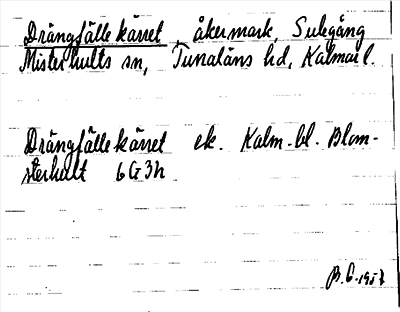 Drängfälle kärret, åkermark, Sulegång
Misterhults sn, Tunaläns hd, Kalmar l.
Drängfälle kärret ek. Kalm-bl. Blom-
sterhult 6G3h